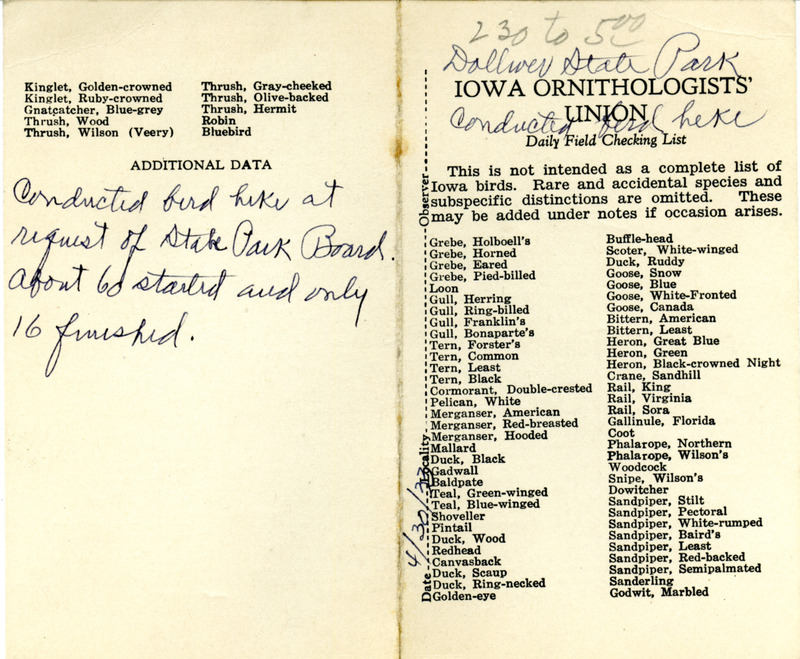 Kinglet, Golden-crowned
Kinglet, Ruby-crowned
Gnatcatcher, Blue-grey
Thrush, Wood
Thrush, Wilson (Veery)
Thrush, Gray-cheeked
Thrush, Olive-backed
Thrush, Hermit
Robin
Bluebird
ADDITIONAL DATA
Conducted bird hike at
request of State Park Board.
About 60 started and only
16 finished.
2 30 to 5 00
Dolliver State Park
IOWA ORNITHOLOGISTS'
UNION
Conducted bird hike
Daily Field Checking List
This is not intended as a complete list of
Iowa birds. Rare and accidental species and
subspecific distinctions are omitted. These
may be added under notes if occasion arises.
Observer
Locality
Date 4/30/33
Grebe, Holboell's
Grebe, Horned
Grebe, Eared
Grebe, Pied-billed
Loon
Gull, Herring
Gull, Ring-billed
Gull, Franklin's
Gull, Bonaparte's
Tern, Forster's
Tern, Common
Tern, Least
Tern, Black
Cormorant, Double-crested
Pelican, White
Merganser, American
Merganser, Red-breasted
Merganser, Hooded
Mallard
Duck, Black
Gadwall
Baldpate
Teal, Green-winged
Teal, Blue-winged
Shoveller
Pintail
Duck, Wood
Redhead
Canvasback
Duck, Scaup
Duck, Ring-necked
Golden-eye
Buffle-head
Scoter, White-winged
Duck, Ruddy
Goose, Snow
Goose, Blue
Goose, White-Fronted
Goose, Canada
Bittern, American
Bittern, Least
Heron, Great Blue
Heron, Green
Heron, Black-crowned Night
Crane, Sandhill
Rail, King
Rail, Virginia
Rail, Sora
Gallinule, Florida
Coot
Phalarope, Northern
Phalarope, Wilson's
Woodcock
Snipe, Wilson's
Dowitcher
Sandpiper, Stilt
Sandpiper, Pectoral
Sandpiper, White-rumped
Sandpiper, Baird's
Sandpiper, Least
Sandpiper, Red-backed
Sandpiper, Semipalmated
Sanderling
Godwit, Marbled